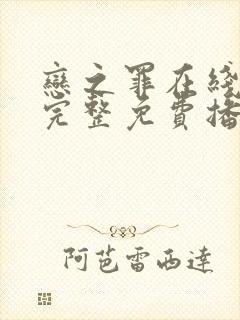 戀之罪在綫
完整免費播
阿芭雷西達